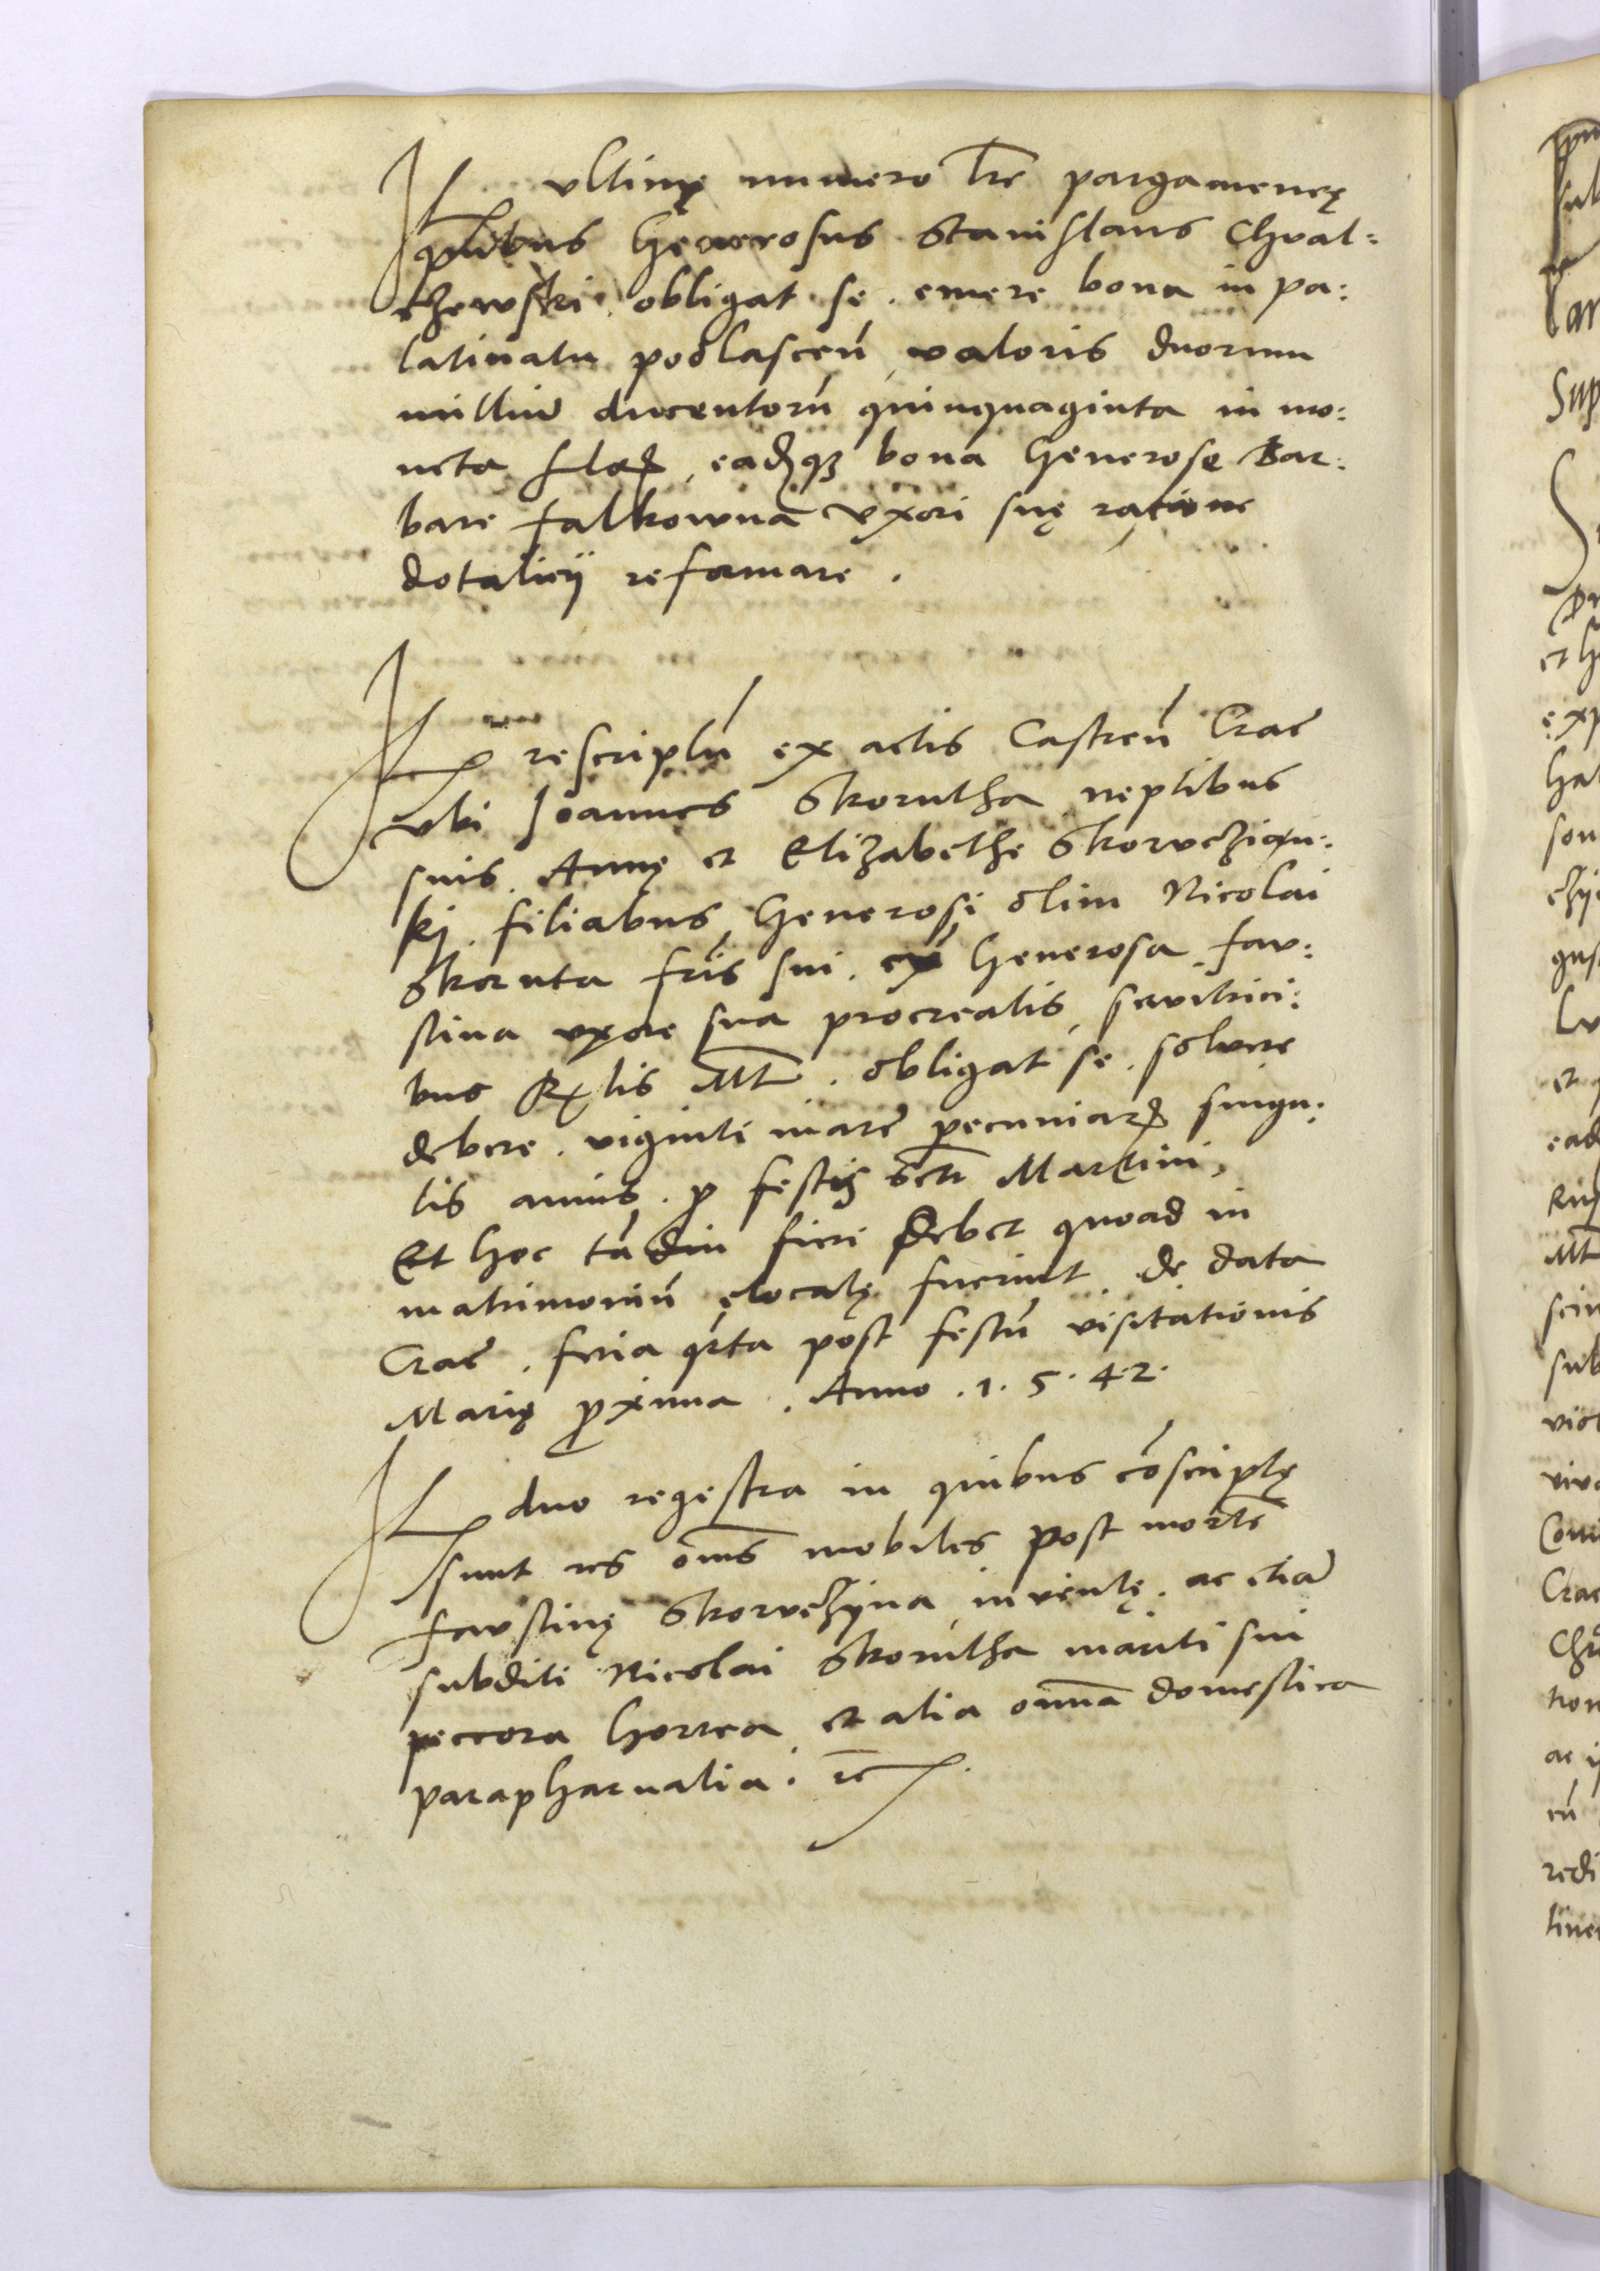 It ultimę numero lr̄e pargameneę
quibus Generosus Stanislaus Chval:
czewski obligat se emere bona in pa:
latinatu podlasceń valoris duorum
milliū ducentorū quinquaginta in mo:
neta eadēq bona Generose Bar:
bare falkownā Uxori suę ratione
dotalicÿ reformare .
It rescriptū ex actis Castreń Crac̄
ubi Joannes Skorutha neptibus
suis . Annę et Elizabethe Skoruczian:
kj . filiabus Generosi olim Nicolai
Skoruta fr̄is sui . ex Generosa fau:
stina uxore sua procreatis, servitrici:
bus R lis Mt . obligat se . solvere
debere . viginti marc̄ pecuniarꝝ singu:
lis annis . p festis scti Martini,
Et hoc tādiu fieri Debet quoad in
matrimoniū elocatę fuerint de data
Crac̄ . feria qrta post festū visitationis
Marię pxima . Anno . 1 . 5 . 4 . 2 .
It duo regestra in quibus cōscriptę
sunt res om̄s mobiles post mortē
faustinę Skoruczÿna inventę . ac etiā
subditi Nicolai Skorutha mariti sui
peccora horrea et alia omnā domestica
parapharnalia . rc̄